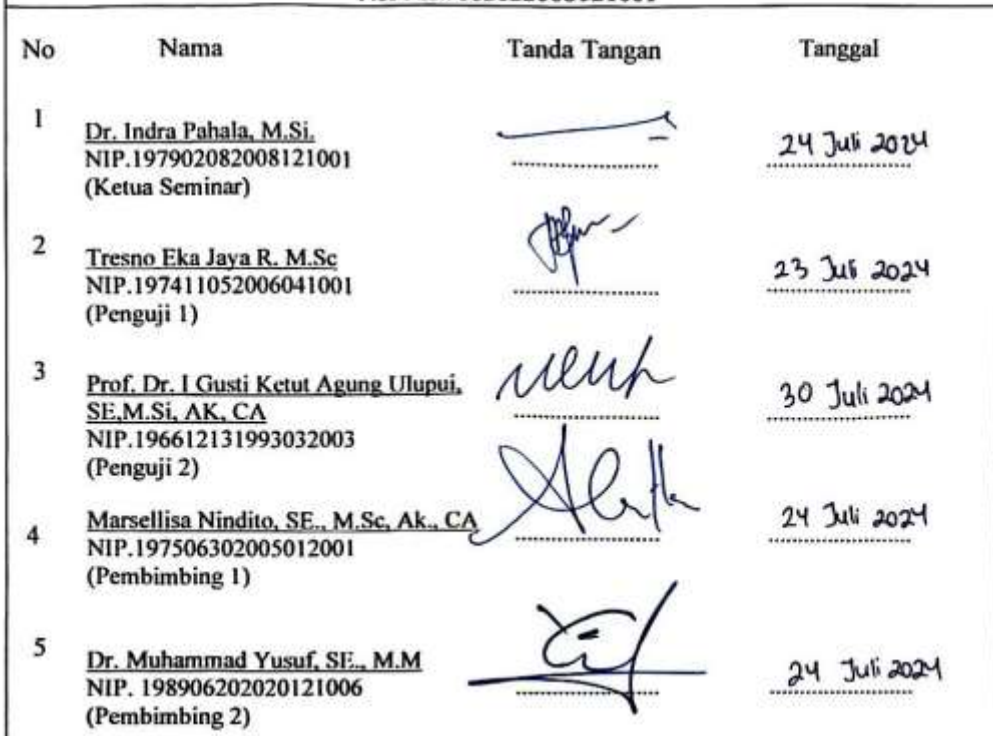 No Nama Tanda Tangan Tanggal
1 Dr. Indra Pahala, M.Si.
NIP.197902082008121001
(Ketua Seminar)
24 Juli 2024
2 Tresno Eka Jaya R. M.Sc
NIP.197411052006041001
(Penguji 1)
23 Juli 2024
3 Prof. Dr. I Gusti Ketut Agung Ulupui,
SE,M.Si, AK, CA
NIP.196612131993032003
(Penguji 2)
30 Juli 2024
4 Marsellisa Nindito, SE., M.Sc, Ak., CA
NIP.197506302005012001
(Pembimbing 1)
24 Juli 2024
5 Dr. Muhammad Yusuf, SE., M.M
NIP. 198906202020121006
(Pembimbing 2)
24 Juli 2024